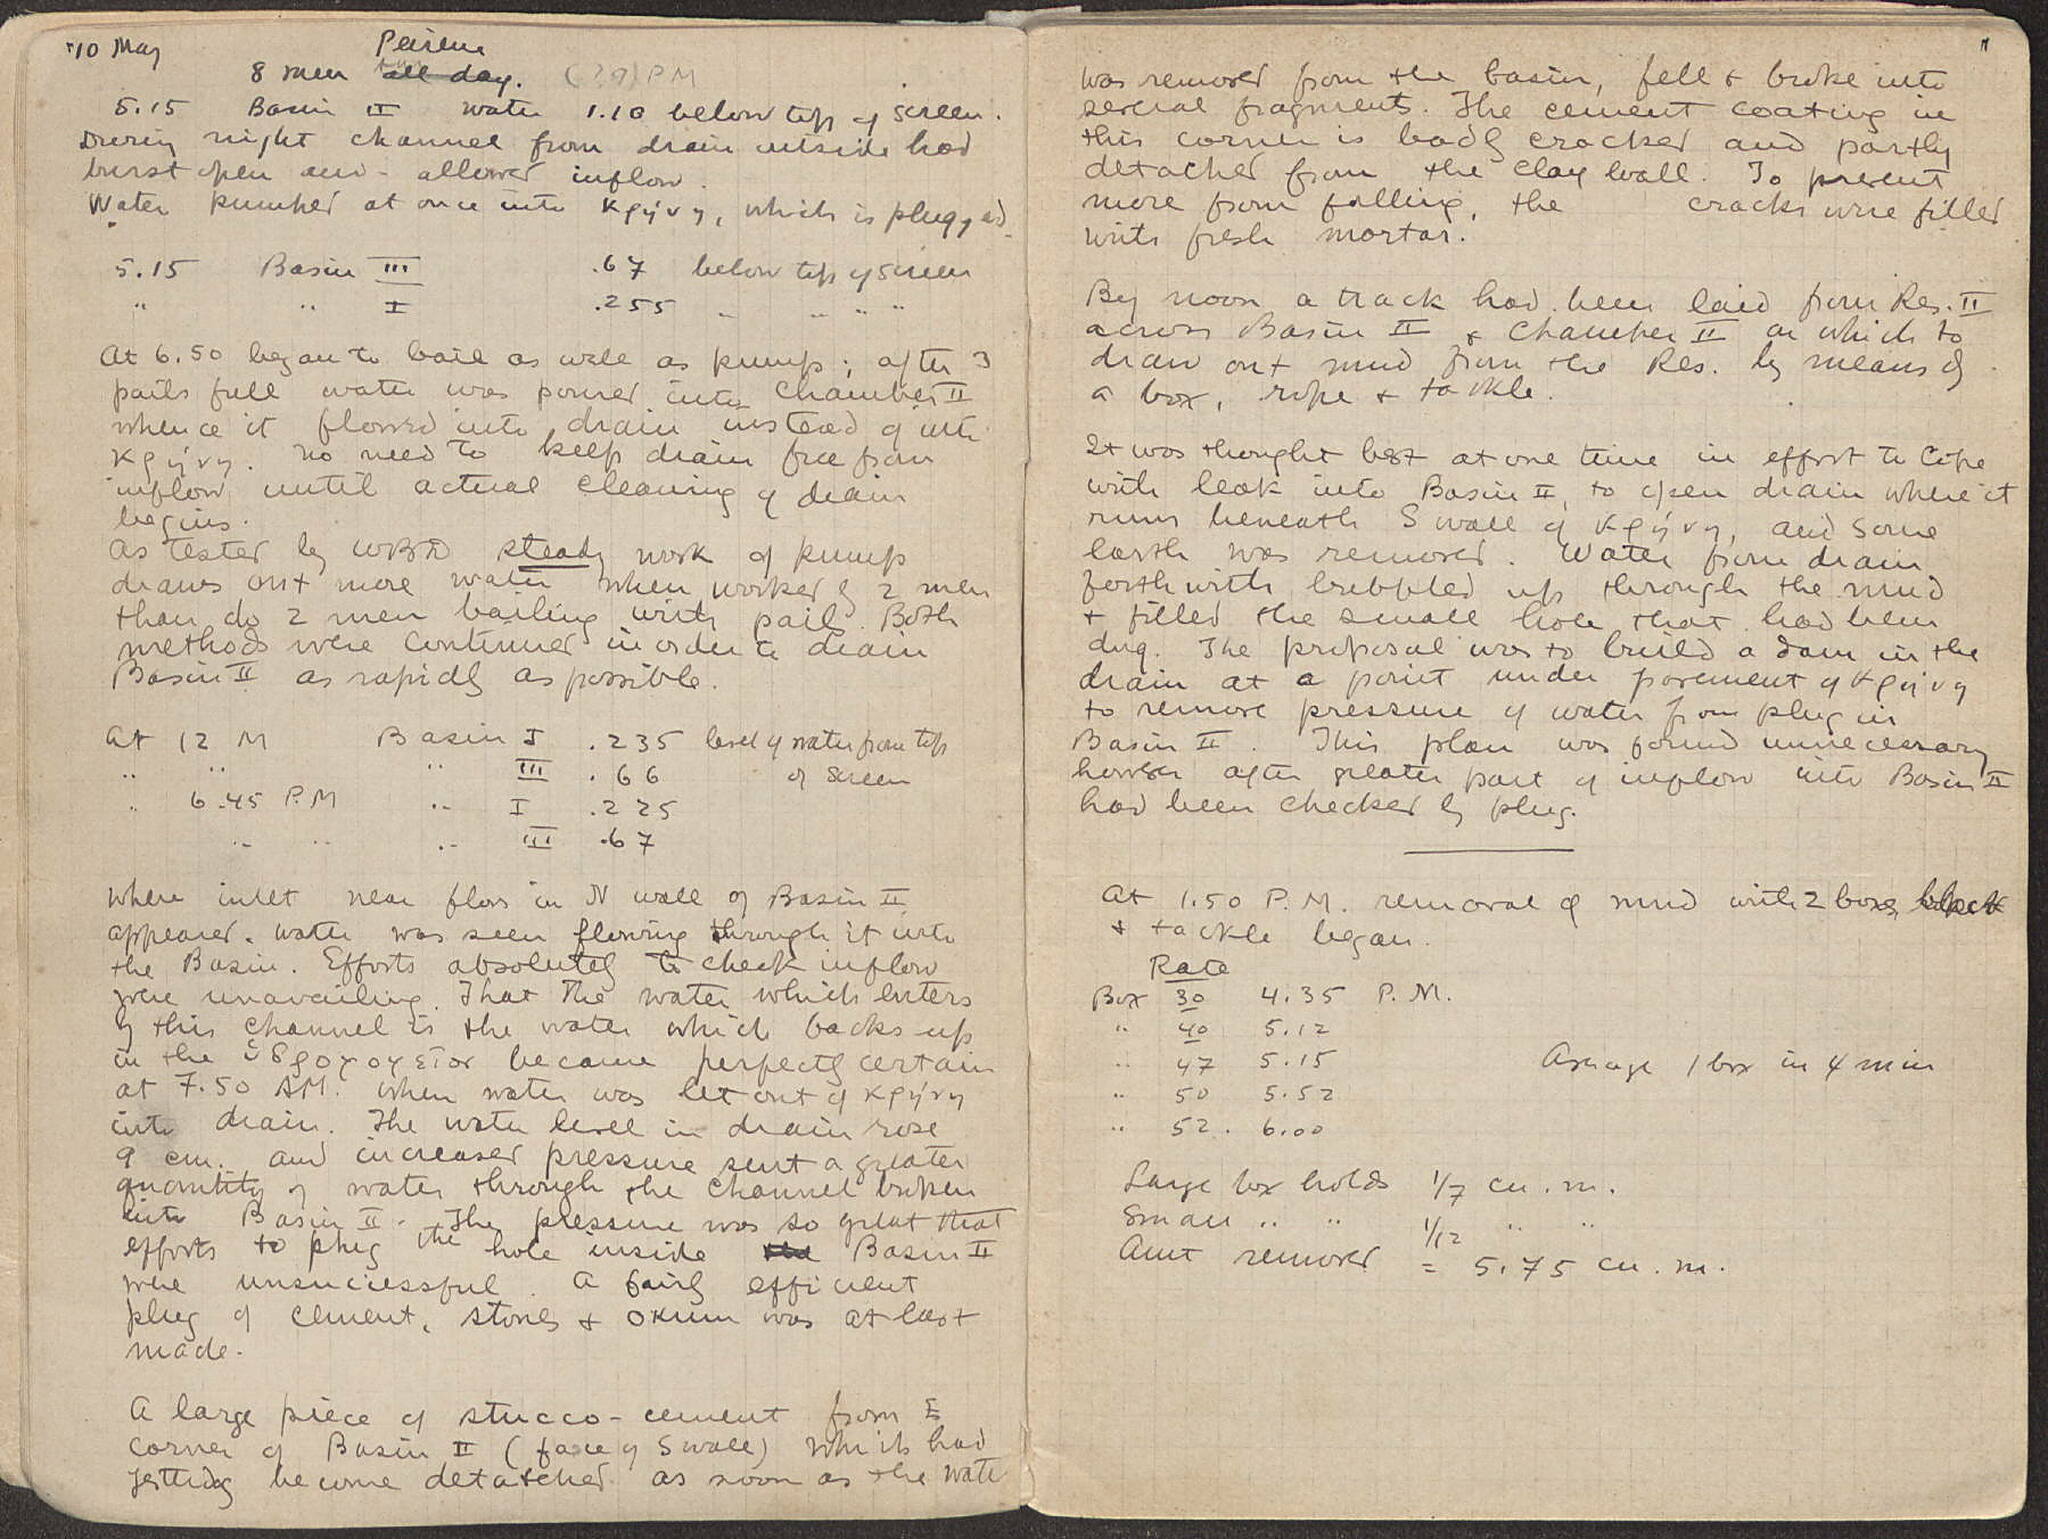 10 May
Peirene
8 men all day. (? 9) P M
5.15 Basin II water 1.10 below top of screen.
During night channel from drain outside had
burst open and allowed inflow.
Water pumped at once into Κρήνη, which is plugged.
5.15 Basin III .67 below top of screen
" " I .255 " " " "
At 6.50 began to bail as well as pump; after 3
pails full water was poured into Chamber II
whence it flowed into drain instead of into
Κρήνη. No need to keep drain free from
inflow until actual cleaning of drain
begins.
As tested by WBD steady work of pump
draws out more water when worked by 2 men
than do 2 men bailing with pails. Both
methods were continued in order to drain
Basin II as rapidly as possible.
At 12 M Basin I .235 level of water from top
" " " III .66 of screen
" 6.45 P.M " I .225
" " " III .67
Where inlet near floor in N wall of Basin II
appeared, water was seen flowing through it into
the Basin. Efforts absolutely to check inflow
were unavailing. That the water which enters
by this channel is the water which backs up
in the ὑδραγωγεῖον became perfectly certain
at 7.50 AM. when water was let out of Κρήνη
into drain. The water level in drain rose
9 cm. and increased pressure sent a greater
quantity of water through the channel broken
into Basin II. The pressure was so great that
efforts to plug the hole inside the Basin II
were unsuccessful. A fairly efficient
plug of cement, stones & okum was at last
made.
A large piece of stucco-cement from E
corner of Basin II (face of S wall) which had
yesterday become detatched as soon as the water
11
was removed from the basin, fell & broke into
several fragments. The cement coating in
this corner is badly cracked and partly
detached from the clay wall. To prevent
more from falling, the cracks were filled
with fresh mortar.
By noon a track had been laid from Res. II
across Basin II & Chamber II on which to
draw out mud from the Res. by means of
a box, rope & tackle.
It was thought best at one time in effort to cope
with leak into Basin II, to open drain where it
runs beneath S wall of Κρήνη, and some
earth was removed. Water from drain
forthwith bubbled up through the mud
& filled the small hole that had been
dug. The proposal was to build a dam in the
drain at a point under pavement of Κρήνη
to remove pressure of water from plug in
Basin II. This plan was found unnecessary
however after greater part of inflow into Basin II
had been checked by plug.
At 1.50 P.M. removal of mud with 2 boxes, block
& tackle began.
Rate
Box 30 4.35 P.M.
" 40 5.12
" 47 5.15
" 50 5.52
" 52. 6.00
Average 1 box in 4 min
Large box holds 1/7 cu. m.
Small " " 1/12 " "
Amt removed = 5.75 cu. m.